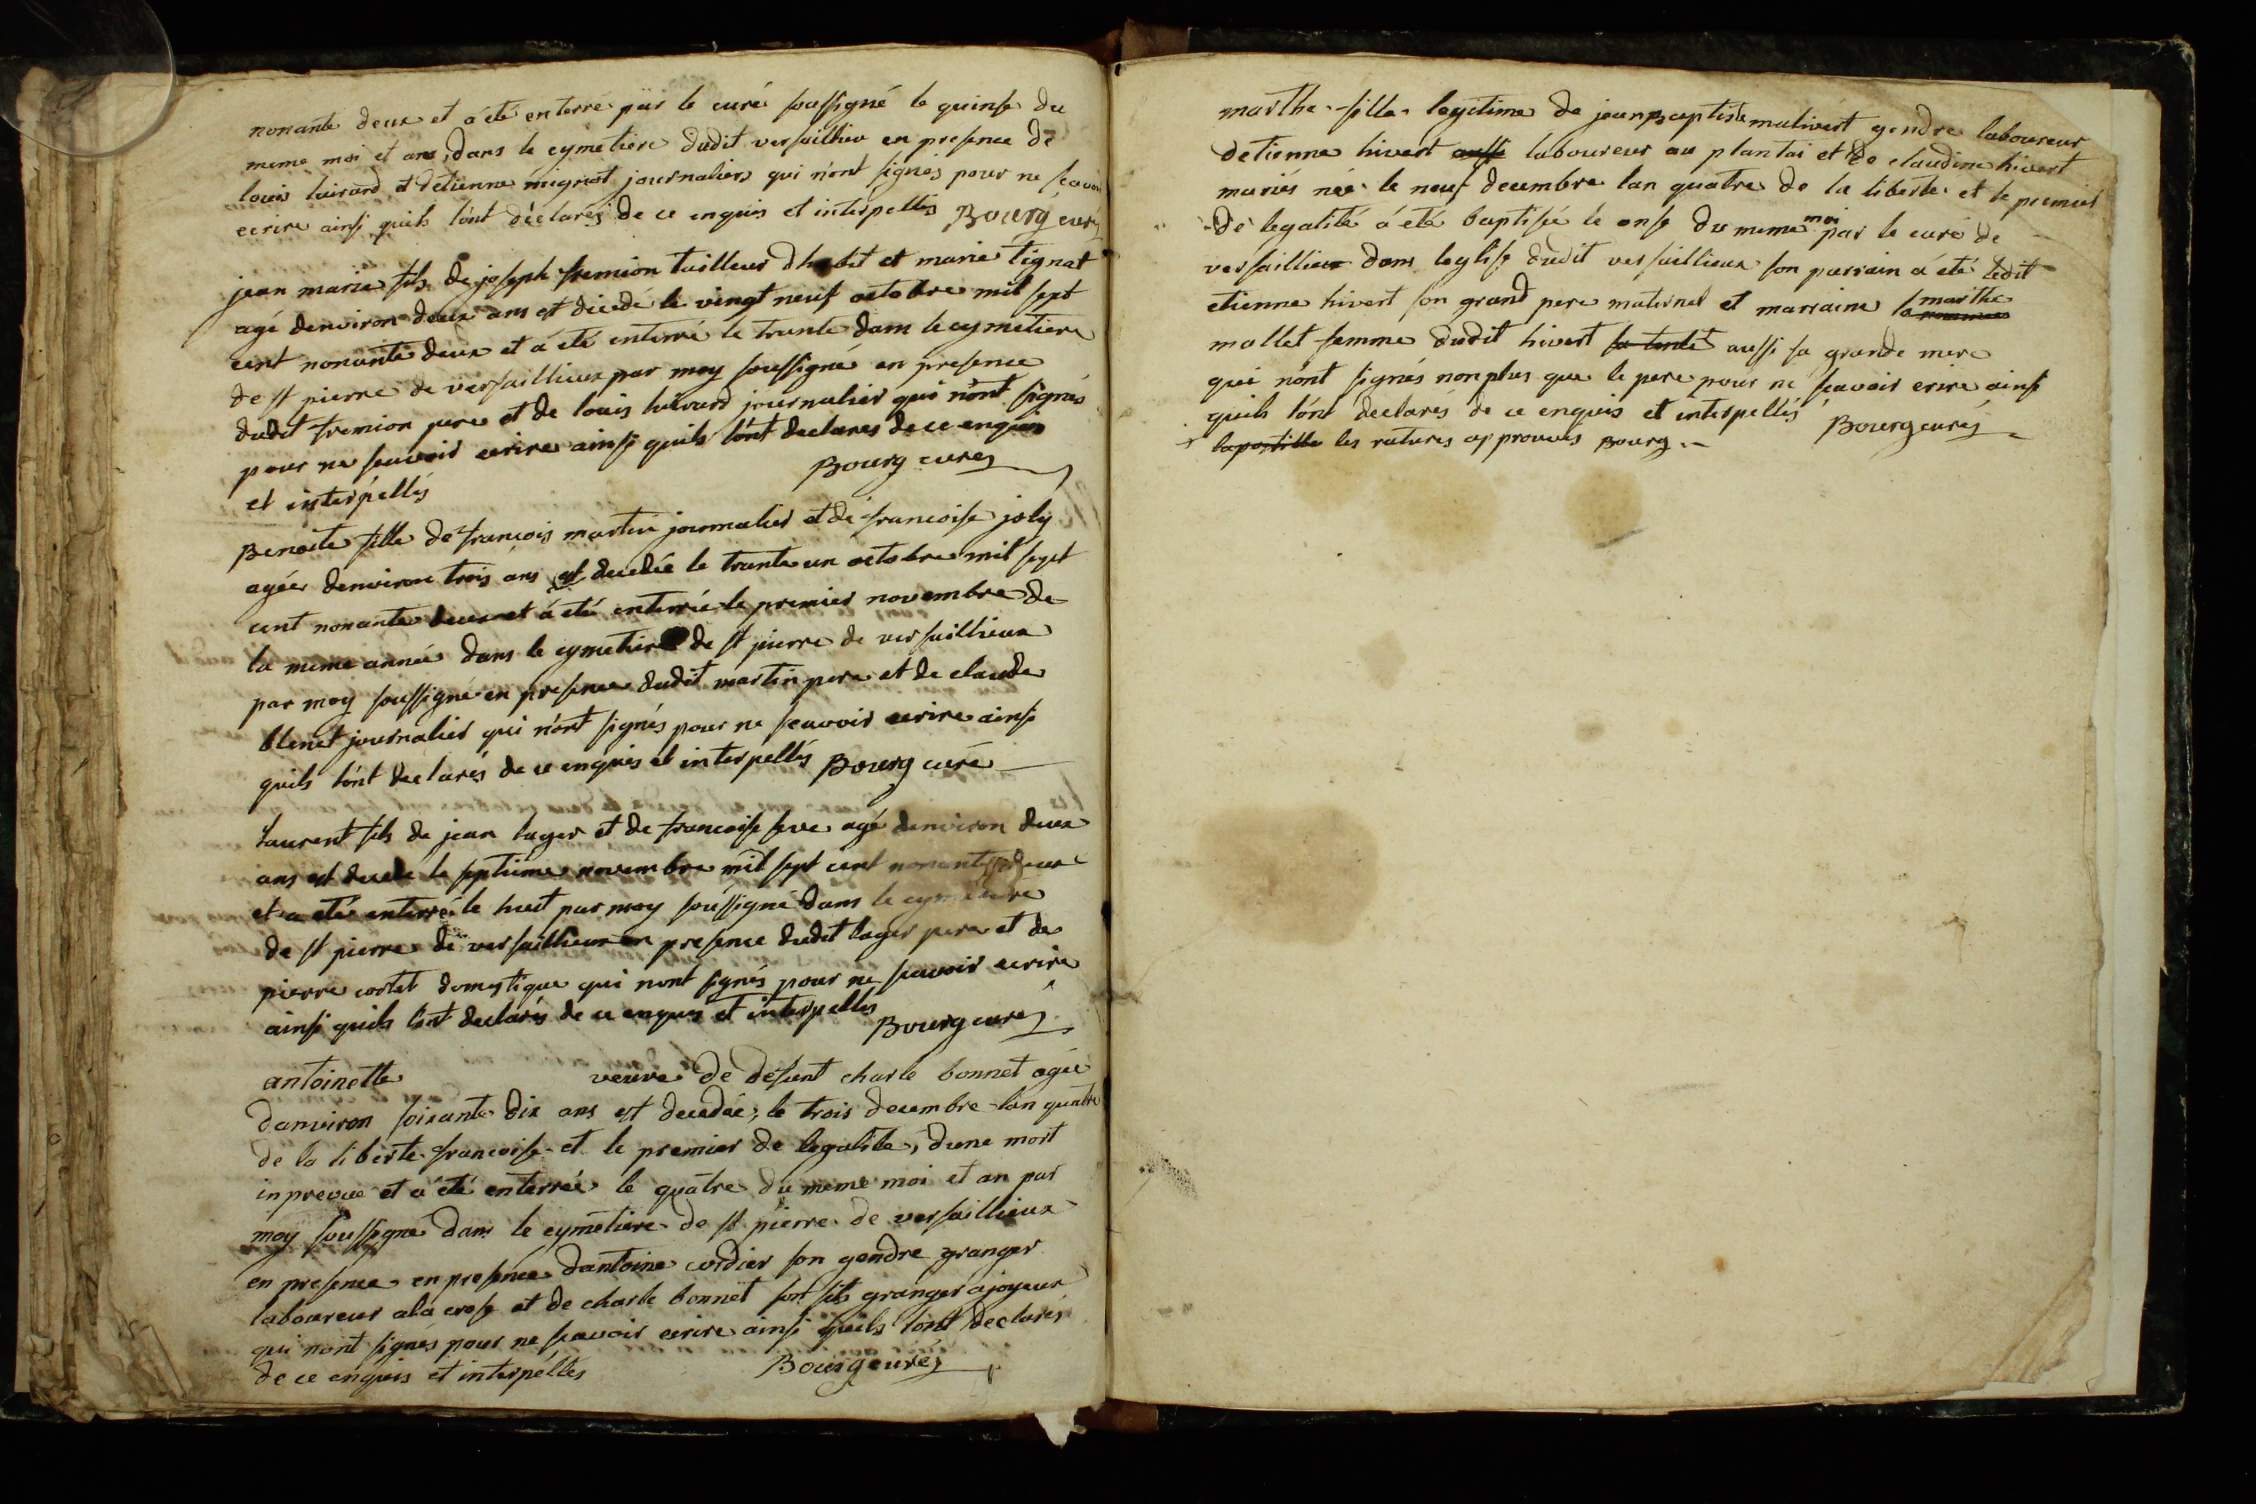 nonante deux et a été enterré par le curé soussigné le quinse du
meme moi et ans, dans le cymetiere dudit versaillieu en presence de
louis luirard et detienne mignot journaliers qui nont signés pour ne scavoir
ecrire ainsi quils lont déclarés de ce enquis et interpellés Bourg curé
jean marie fils de joseph fremion tailleur dhabit et marie tignat
agé denviron deux ans est dicedé le vingt neuf octobre mil sept
cent nonante deux et a été enterré le trante dans le cymetiere
de st pierre de versaillieux par moy soussigné en presence
dudit fremion pere et de louis luirard journalier qui nont signés
pour ne scavoir ecrire ainsi quils lont declares de ce enquis
et interpéllés Bourg curé
Benoite fille de francois martin journalier et de francoise joly
agée denviron trois ans est decedée le trante un octobre mil sept
cent nonante deux et á eté enterrée le premier novembre de
la meme année dans le cymetiere de st pierre de versaillieux
par moy soussigné en presence dudit martin pere et de claude
blenet journalier qui nont signés pour ne scavoir ecrire ainsi
quils lont declarés de ce enquis et interpellés Bourg curé
laurent fils de jean lager et de francoise seve agé denviron deux
ans est decedé le septieme novembre mil sept cent nonante deux
et a eté enterré le huit par moy soussigné dans le cymetiere
de st pierre de versaillieux en presence dudit lager pere et de
pierre cortet domestique qui nont signés pour ne scavoir ecrire
ainsi quils lont declarés de ce enquis et interpellés
Bourg curé
antoinette veuve de defunt charle bonnet agée
danviron soixante dix ans est decedée, le trois decembre lan quatre
de la liberte francoise et le premier de legalité, dune mort
inprevue et a été enterrée le quatre du meme moi et an par
moy soussigné dans le cymetiere de st pierre de versaillieux
en presence en presence dantoine cordier son gendre granger
laboureur a la crose et de charle bonnet son fils granger a joyeux
qui nont signés pour ne scavoir ecrire ainsi quils lont declarés
de ce enquis et interpellés Bourg curé
marthe fille legitime de jean Baptiste malivert gendre laboureur
detienne hivert aussi laboureur au plantai et de claudine hivert
mariés née le neuf decembre lan quatre de la liberte et le premier
de legalité á eté baptisée le onse du meme moi par le curé de
versaillieux dans leglise dudit versaillieux son parrain á eté ledit
etienne hivert son grand pere maternel et marraine marthe
mollet femme dudit hivert sa tente aussi sa grande mere
qui nont signés non plus que le pere pour ne scavoir ecrire ainsi
quils lont declarés de ce enquis et interpellés Bourg curé
lapostille les ratures approuvés Bourg